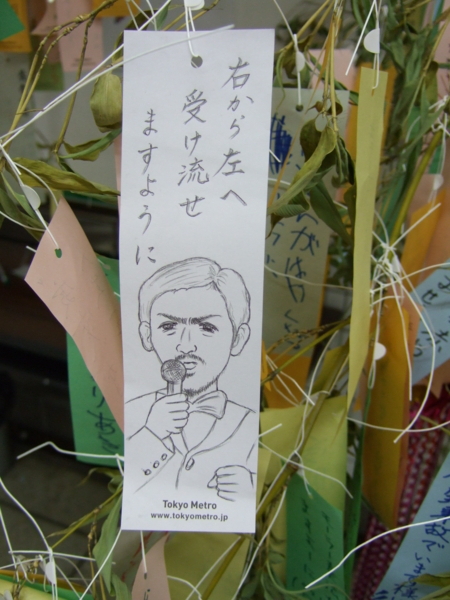 右から左へ
受け流せ
ますように
Tokyo Metro
www.tokyometro.jp